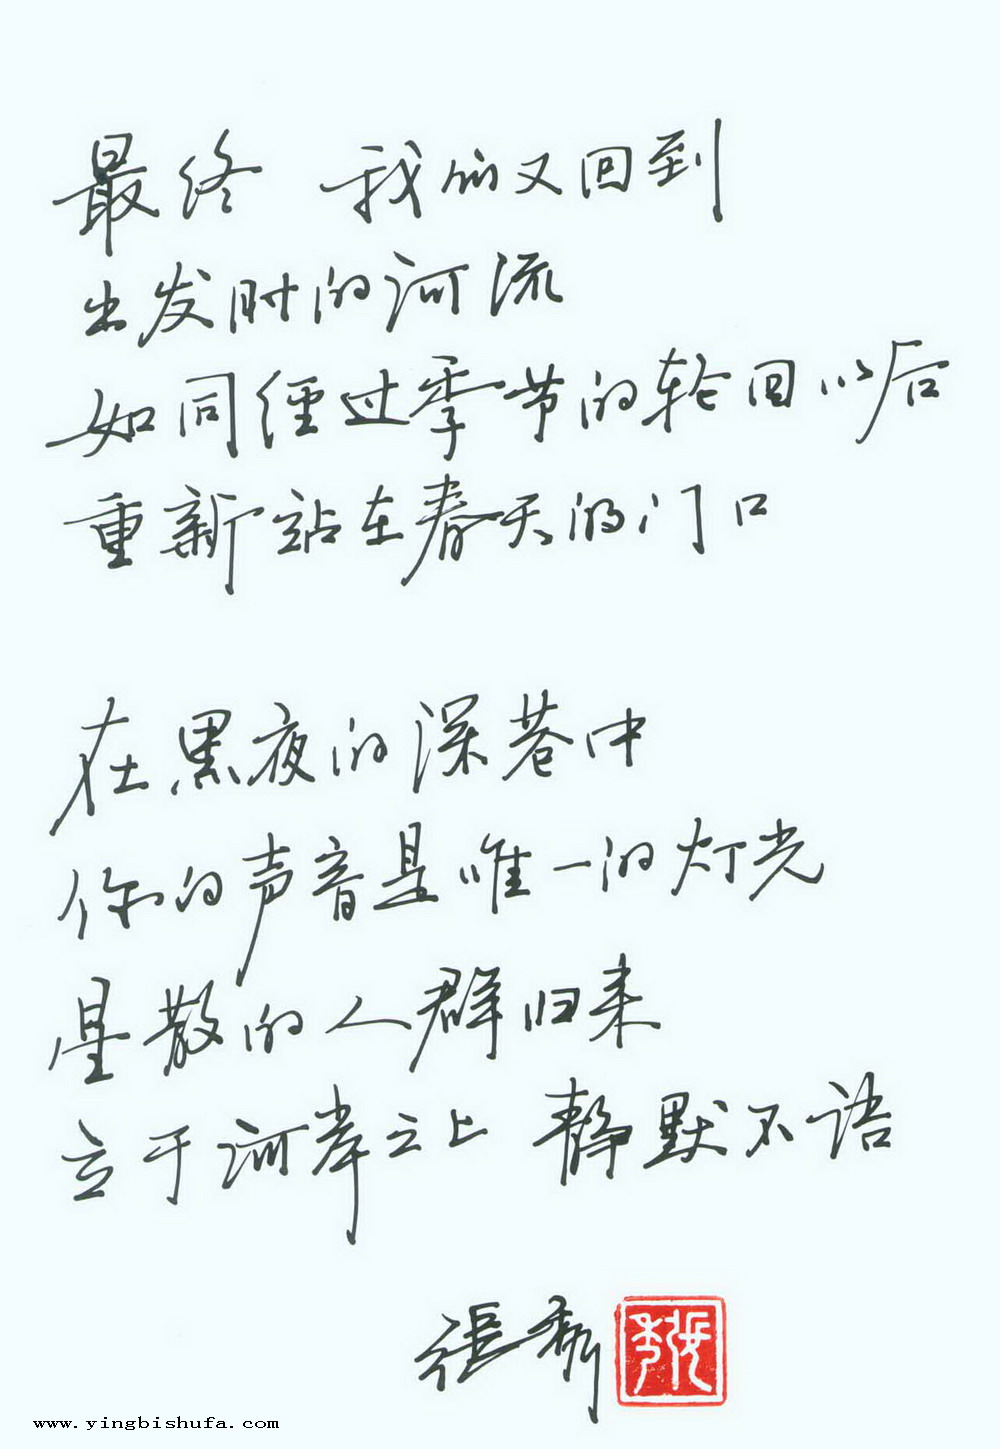 最终 我们又回到
出发时的河流
如同经过季节的轮回以后
重新站在春天的门口
在黑夜的深巷中
你的声音是唯一的灯光
星散的人群归来
立于河岸之上 静默不语
張秀
www.yingbishufa.com